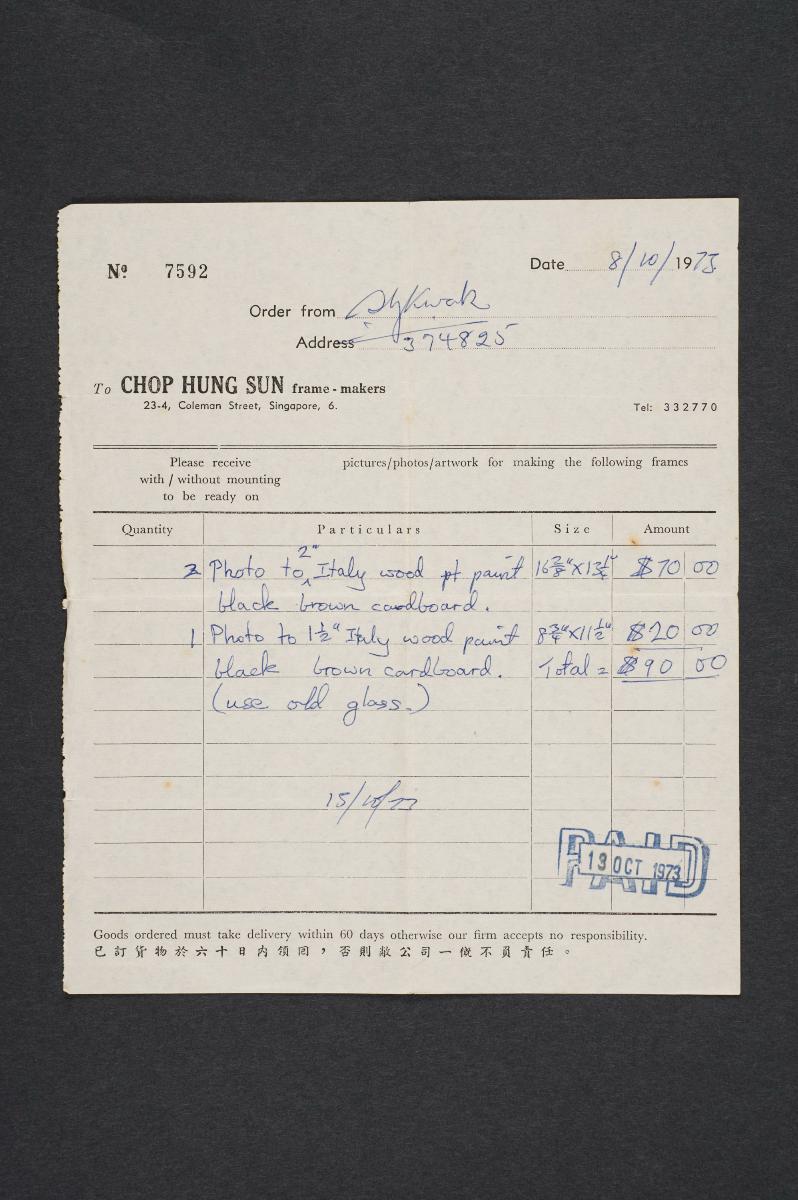 Nº 7592
Date 8/10/1973
Order from
Address 374825
To CHOP HUNG SUN frame - makers
23-4, Coleman Street, Singapore, 6.
Tel: 332770
Please receive pictures/photos/artwork for making the following frames
with / without mounting
to be ready on
Quantity Particulars Size Amount
2 Photo to 2" Italy wood pt paint 16⅜"X13¼" $70 00
black brown cardboard.
1 Photo to 1½" Italy wood paint 8¾"X11½" $20 00
black brown cardboard. Total = $90 00
(use old glass.)
15/10/
PAID
13 OCT 1973
Goods ordered must take delivery within 60 days otherwise our firm accepts no responsibility.
已訂貨物於六十日內領回，否則敝公司一概不負責任。